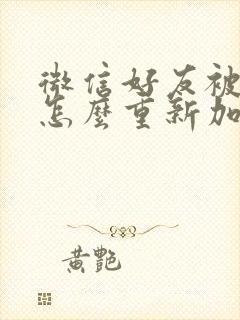 微信好友被
怎麼重新加
黃艷